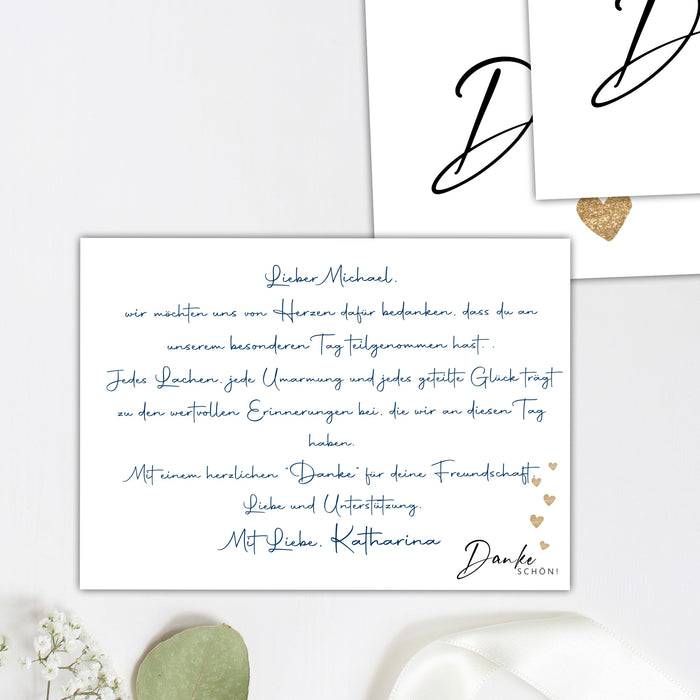 D
D
Lieber Michael,
wir möchten uns von Herzen dafür bedanken, dass du an
unserem besonderen Tag teilgenommen hast. .
Jedes Lachen, jede Umarmung und jedes geteilte Glück trägt
zu den wertvollen Erinnerungen bei, die wir an diesen Tag
haben.
Mit einem herzlichen "Danke" für deine Freundschaft,
Liebe und Unterstützung.
Mit Liebe, Katharina
Danke
SCHÖN!